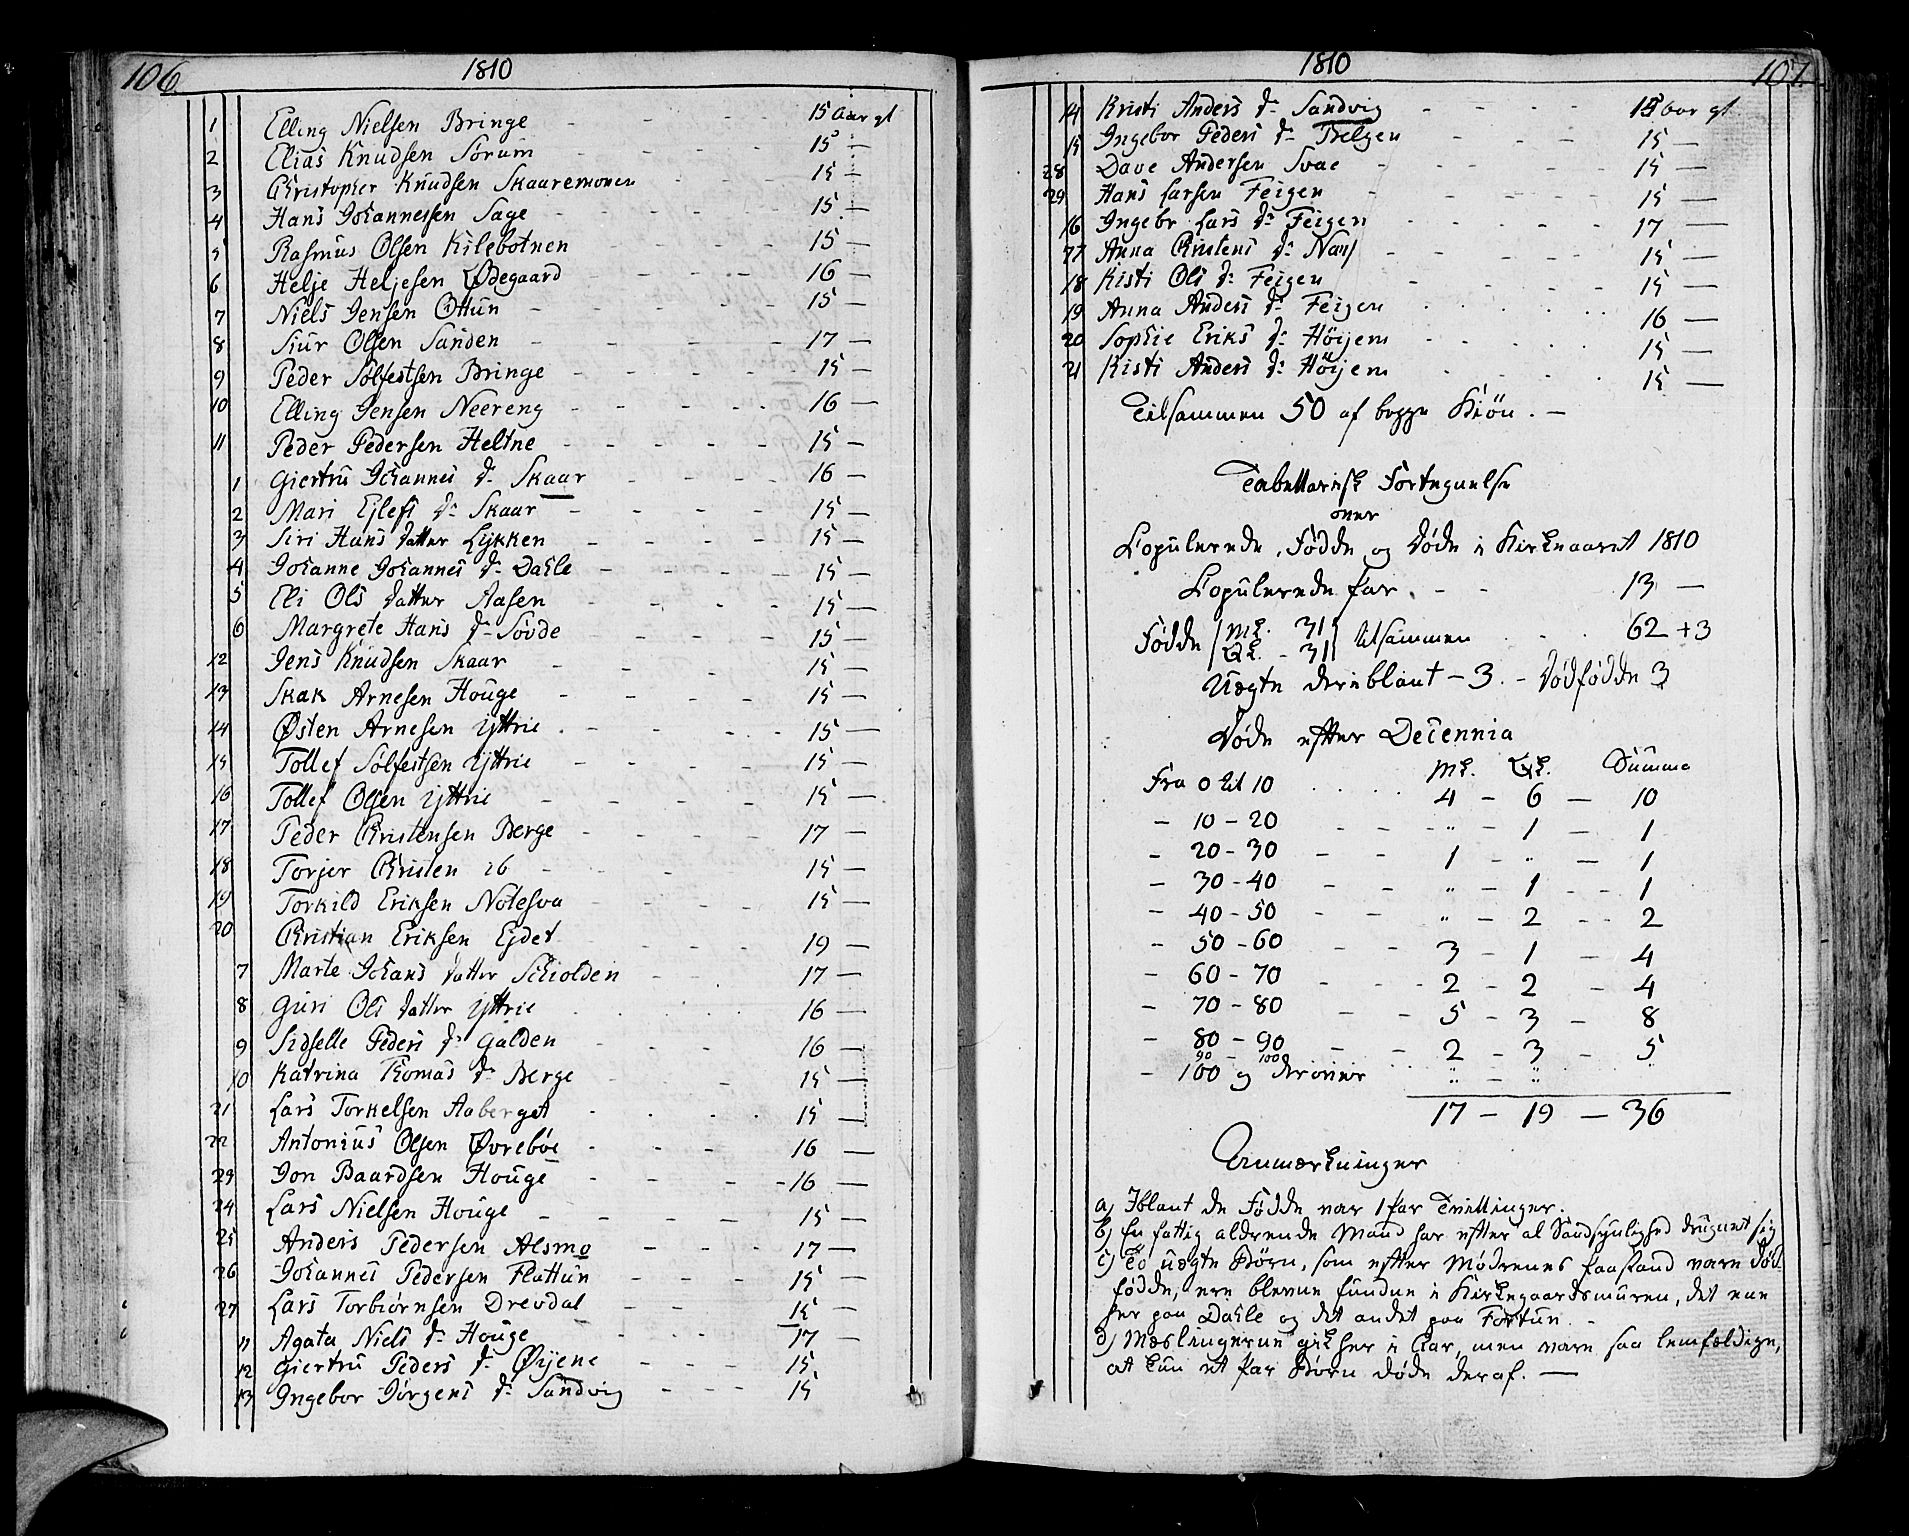 106
1810
1 Elling Nielsen Bringe - - - - 15 aar gl
2 Elias Knudsen Sørum - - - - 15 -
3 Christopher Knudsen Skaaremonen - - 15 -
4 Hans Johannessen Sage - - - - 15 -
5 Rasmus Olsen Kilebotnen - - - 15 -
6 Helje Heljesen Ødegaard - - - - 16 -
7 Niels Jensen Ottun - - - - 15 -
8 Siur Olsen Sanden - - - - 17 -
9 Peder Sølfestsen Bringe - - - - 15 -
10 Elling Jensen Neereng - - - - 16 -
11 Peder Pedersen Heltne - - - - 15 -
1 Giertru Johannes d: Skaar - - - 16 -
2 Mari Ejlefs d: Skaar - - - - 15 -
3 Siri Hans datter Lykken - - - - 15 -
4 Johanne Johannes d: Dahle - - - - 15 -
5 Eli Ols datter Aasen - - - - 15 -
6 Margrete Hans d: Søvde - - - - 15 -
12 Jens Knudsen Skaar - - - - 15 -
13 Skak Arnesen Houge - - - - 15 -
14 Østen Arnesen Yttrie - - - - 15 -
15 Tollef Sølfestsen Yttrie - - - - 15 -
16 Tollef Olsen Yttrie - - - - 15 -
17 Peder Christensen Berge - - - - 17 -
18 Torjer Christen ib - - - 15 -
19 Torkild Eriksen Notesva - - - - 15 -
20 Christian Eriksen Ejdet - - - 19 -
7 Marte Johans datter Schiolden - - 17 -
8 Guri Ols datter Yttrie - - - - 16 -
9 Sidselle Peders d: Galden - - - 16 -
10 Katrina Thomas d: Berge - - - 15 -
21 Lars Torkelsen Aaberget - - - - 15 -
22 Antonius Olsen Øvrebøe - - - - 16 -
23 Jon Baardsen Houge - - - - 16 -
24 Lars Nielsen Houge - - - - 15 -
25 Anders Pedersen Alsmo - - - 17 -
26 Johannes Pedersen Flattun - - - 15 -
27 Lars Torbiørnsen Drevdal - - - 15 -
11 Agata Niels d: Houge - - - 17 -
12 Giertru Peders d: Øyene - - - 15 -
13 Ingebor Jørgens d: Sandvig - - - 15
1810
107
14 Kristi Anders d: Sandvig - - - - 15 aar gl
15 Ingebor Peders d: Bolgen - - - - 15 -
28 Dave Andersen Svae - - - - 15 -
29 Hans Larsen Feigen - - - - 15 -
16 Ingebr Lars d: Feigen - - - - 17 -
17 Anna Christens d: Næs - - - - 15 -
18 Kisti Ols d: Feigen - - - - 15 -
19 Anna Anders d: Feigen - - - - 16 -
20 Sophie Eriks d: Høijem - - - - 15 -
21 Kisti Anders d: Høijem - - - - 15 -
Tilsammen 50 af begge Kiøn. -
Tabellarisk Fortegnelse
over
Copulerede, Fødde og Døde i Kirkeaaret 1810
Copulerede par. - - 13 -
Fødde Mk. 31 tilsammen - - 62 + 3
Qk. - 31
Uægte deriblant - 3. - Dødfødde 3
Døde efter Decennia
Mk. Qk. Summa
Fra 0 til 10 . . . . 4 - 6 - 10
- 10 - 20 - - " - 1 - 1
- 20 - 30 - - 1 - " - 1
- 30 - 40 - - " - 1 - - 1
- 40 - 50 - - " - 2 - - 2
- 50 - 60 - - 3 - 1 - 4
- 60 - 70 - - 2 - 2 - 4
- 70 - 80 - - 5 - 3 - 8
- 80 - 90 - - 2 - 3 - 5
90 - 100
- 100 og derover " - " "
17 - 19 - 36
Anmærkninger
a) Iblant de Fødde var 1 par Tvillinger.
b) En fattig aldrende Mand har efter al Sandsynlighed druknet sig
c) To uægte Børn, som efter Mødrenes paastand vare død-
fødde, ere blevne fundne i Kirkegaardsmuren, det ene
her paa Dahle og det andet paa Fortun. -
d) Mæslingerne gik her i Aar, men vare saa lemfældige,
at kun et par Børn døde deraf. -